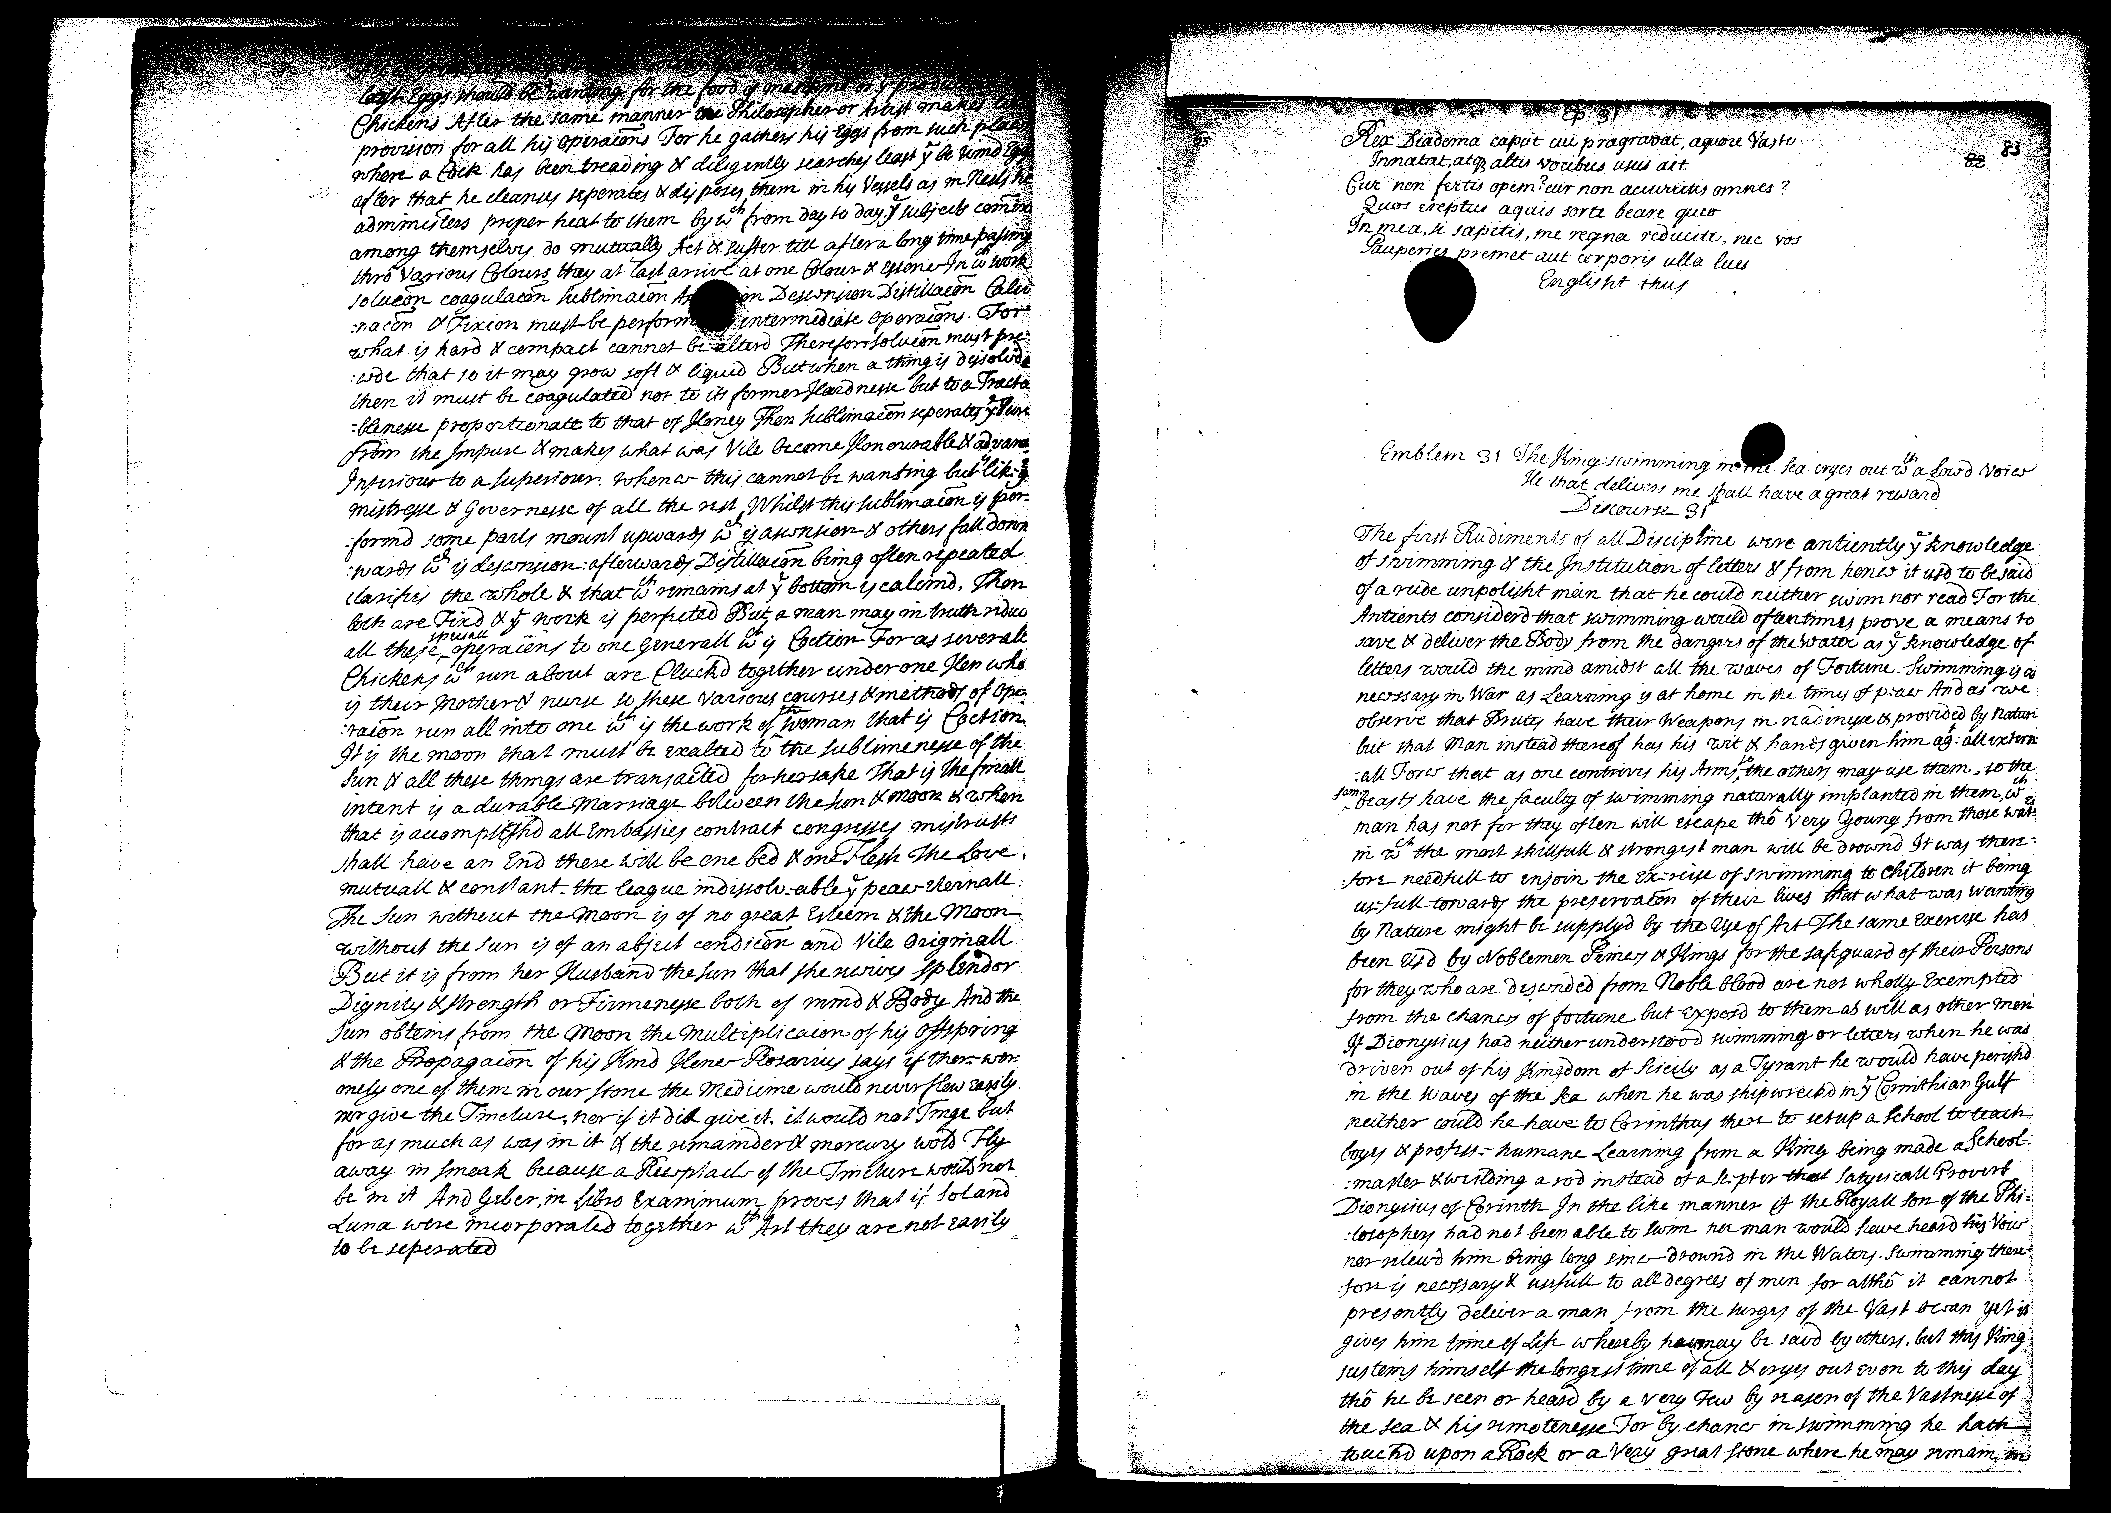 least Eggs should be wanting for the food of mankind or
Chickens After the same manner the Philosopher or Artist makes
provision for all his operacōns For he gathers his Eggs from such places
where a Cock has been treading & diligently searches least yͤ be
after that he cleanses seperates & disposes them in his Vessels as in Nests he
administers proper heat to them by wͨʰ from day to day yͤ subjects comeing
among themselves do mutually Act & suffer till after a long time passing
thrō Various Colours they at last arrive at one Colour & essence In wͨʰ work
solucōn coagulacōn sublimacōn Descension Distillacōn Calci
:nacōn & Fixion must be perform intermediate operacōns. For
what is hard & compact cannot be alterd Therefore solucōn must pre:
:cede that so it may grow soft & liquid But when a thing is dissolvd
then it must be coagulated not to its former Hardnesse but to a Tracta
:blenesse proportionate to that of Honey Then sublimacōn seperates yͤ Pure
from the Impure & makes what was Vile become Honourable & advance
Inferiour to a superiour. whence this cannot be wanting but like yͤ
mistresse & Governesse of all the rest, Whilst this sublimacōn is per:
:formd some parts mount upwards wͨʰ is ascension & others fall down
:wards wͨʰ is descension: afterwards Distillacōn being often repeated
clarifies the whole & that wͨʰ remains at yͤ bottom is calcind. Then
both are Fixd & yͤ work is perfected But a man may in truth reduce
all these speciall operacōns to one Generall wͨʰ is Coction For as severall
Chickens wͨʰ run about are Cluckd together under one Hen who
is their Mother & nurse so these Various courses & methods of Ope
:racōn run all into one wͨʰ is the work of the woman that is Coction
It is the moon that must be exalted to the sublimenesse of the
Sun & all these things are transacted for her sake That is the finall
intent is a durable Marriage between the Sun & moon & when
that is accomplishd all Embassies contract congresses mistrusts
shall have an End there will be one bed & one Flesh The Love
mutuall & constant the league indissolv-able yͤ peace eternall
The Sun without the Moon is of no great Esteem & the Moon
without the Sun is of an abject condicōn and Vile originall
But it is from her Husband the Sun that she receives Splendor
Dignity & strength or Firmenesse both of mind & Body And the
Sun obteins from the Moon the Multiplicacōn of his offspring
& the Propagacōn of his Kind Hence Rosarius says if there were
onely one of them in our stone the Medicine would never flow easily
nor give the Tincture, nor if it did give it, it would not Tinge but
for as much as was in it & the remainder & mercury wold Fly
away in smoak because a Receptacle of the Tincture would not
be in it And Geber in Libro Examinum proves that if Sol and
Luna were incorporated together wͭʰ Art they are not easily
to be seperated
Ep 31
82 83
Rex Diadema caput cui pragravat, aquore Vasto
Innatat, atq altis vocibus usus ait
Cur non fertis opem? cur non accurritis omnes?
Quos ereptus aquis sorte beare queo
In mea, si sapitis, me regna reducite, nec vos
Pauperies premet aut corporis ulla lues
Englisht thus
Emblem 31 The King swimming in the Sea cryes out wͭʰ a Lowd Voice
He that delivers me shall have a great reward
Discourse 31
The first Rudiments of all Discipline were antiently yͤ knowledge
of swimming & the Institution of letters & from hence it usd to be said
of a rude unpolisht man that he could neither swim nor read For the
Antients considerd that swimming would oftentimes prove a means to
save & deliver the Body from the dangers of the Water as yͤ knowledge of
letters would the mind amidst all the waves of Fortune. Swimming is as
necessary in War as Learning is at home in the times of peace And as we
observe that Brutes have their Weapons in readinesse & provided by Nature
but that Man instead thereof has his wit & hands given him agͭ all extern
:all Force that as one contrives his Arms, the others may use them, so the
some beasts have the faculty of swimming naturally implanted in them, wͨʰ
man has not for they often will escape thō Very Young from those waters
in wͨʰ the most skillfull & strongest man will be drownd It was there:
:fore needfull to enjoin the Exercise of swimming to children it being
usefull towards the preservacōn of their lives that what was wanting
by Nature might be supplyd by the Use of Art The same Exercise has
been Usd by Noblemen Princes & Kings for the safeguard of their Persons
for they who are descended from Noble blood are not wholly Exempted
from the chances of fortune but exposd to them as well as other men
If Dionysius had neither understood swimming or letters when he was
driven out of his Kingdom of Sicily as a Tyrant he would have perishd
in the Waves of the Sea when he was shipwreckd in yͤ Corinthian Gulf
neither could he have to Corinthus there to set up a School to teach
boyes & professe humane Learning from a King being made a School:
:master & weilding a rod instead of a Scepter that Satyricall Proverb
Dionysius of Corinth In the like manner if the Royall son of the Phi:
:losophers had not been able to swim no man would have heard his Voice
nor relevd him being long since drownd in the Waters. Swimming there:
:fore is necessary & usefull to all degrees of men for althō it cannot
presently deliver a man from the surges of the Vast ocean yet it
gives him time of Life whereby he may be savd by others. but this King
susteins himself the longest time of all & cryes out even to this day
thō he be seen or heard by a Very Few by reason of the Vastnesse of
the Sea & his remotenesse For by chance in swimming he hath
touchd upon a Rock or a Very great stone where he may remain in